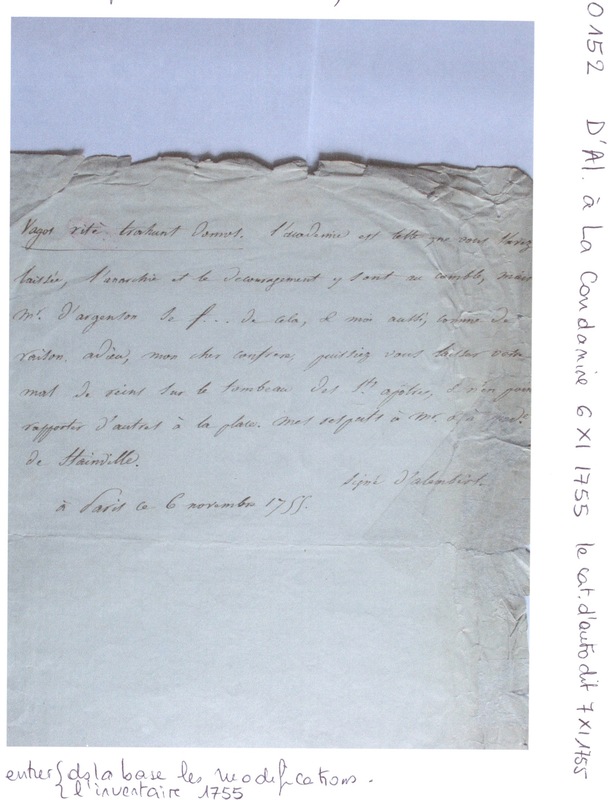 Vagos ritè trahunt domos. l'academie est telle que vous l'avez
laissée, l'anarchie et le decouragement y sont au comble, mais
Mr. d'argenson se f... de cela, & moi aussi, comme de
raison. adieu, mon cher confrere, puissiez vous laisser votre
mal de reins sur le tombeau des Sts. apôtres, & n'en point
rapporter d'autres à la place. mes respects à Mr. & à
de Stainville.
signé d'alembert.
à Paris ce 6 novembre 1755.
0152 D'Al. à La Condamine 6 XI 1755 le cat. d'auto dit 7 XI 1755
entrer ds la base les modifications.
l'inventaire 1755